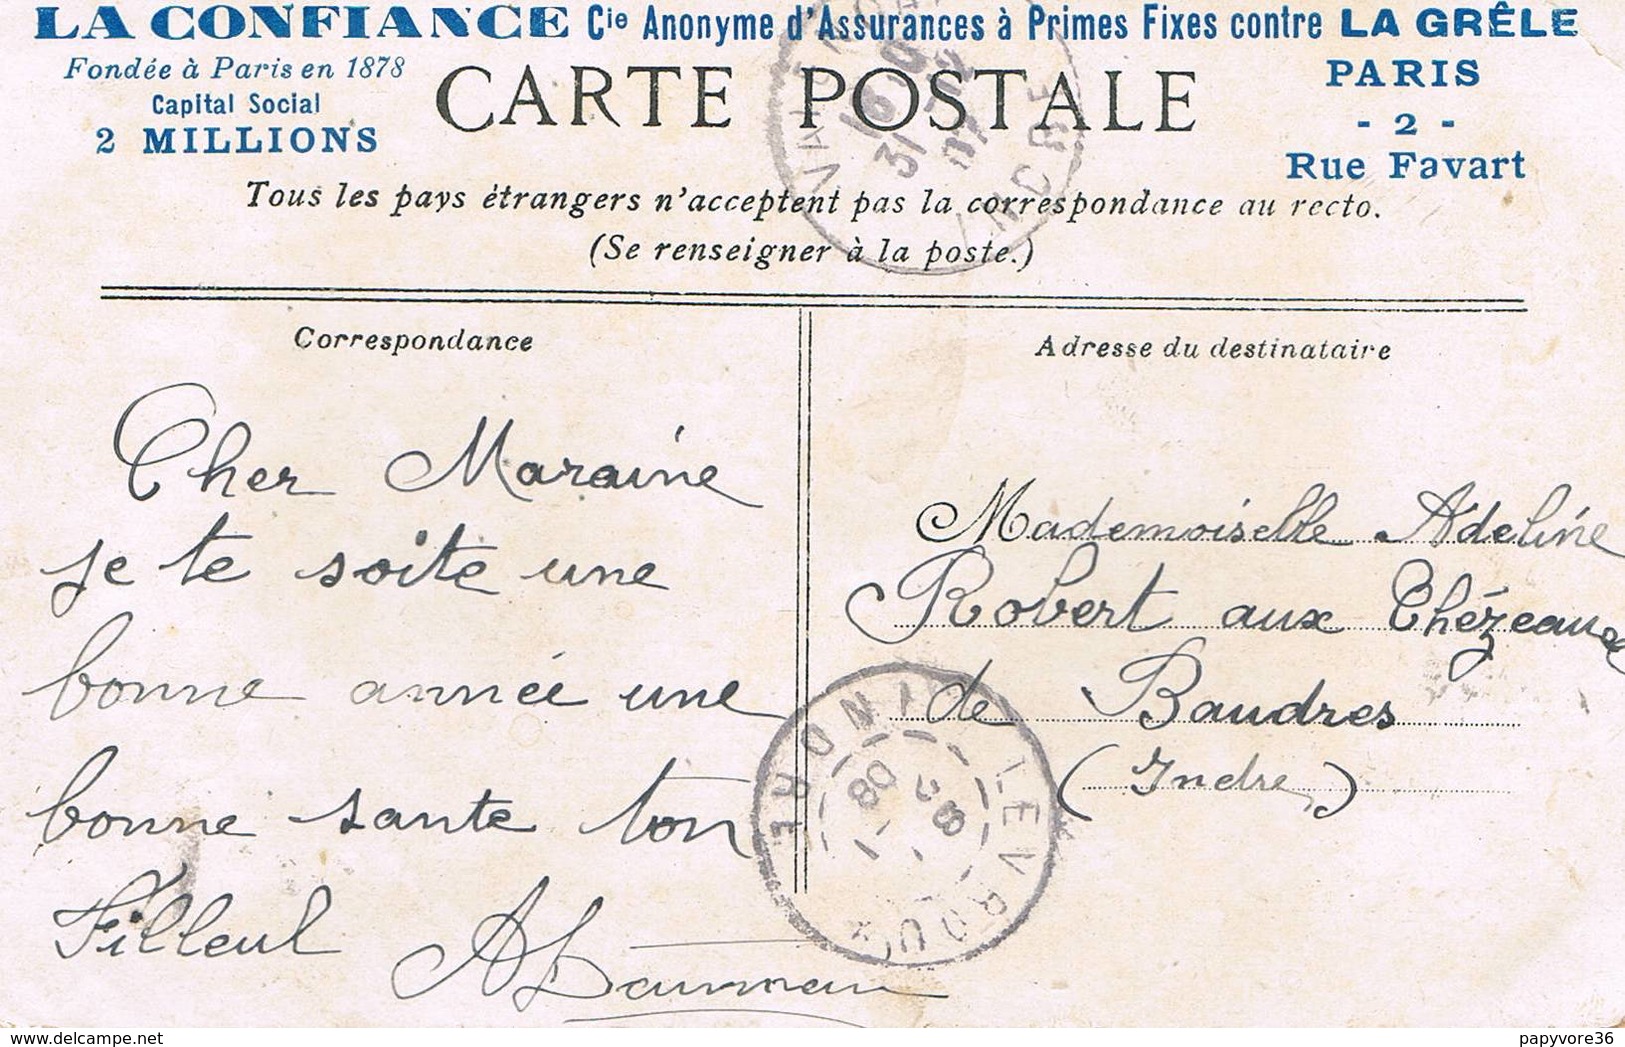 LA CONFIANCE Cie Anonyme d'Assurances à Primes Fixes contre LA GRÊLE
Fondée à Paris en 1878
Capital Social
2 MILLIONS
CARTE POSTALE
PARIS
- 2 -
Rue Favart
Tous les pays étrangers n'acceptent pas la correspondance au recto.
(Se renseigner à la poste.)
Correspondance
Cher Maraine
je te soite une
bonne année une
bonne sante ton
Filleul
Adresse du destinataire
Mademoiselle Adeline
Robert aux Chézeaux
de Baudres
(Indre)
LEVROUX
INDRE
papyvore36
www.delcampe.net